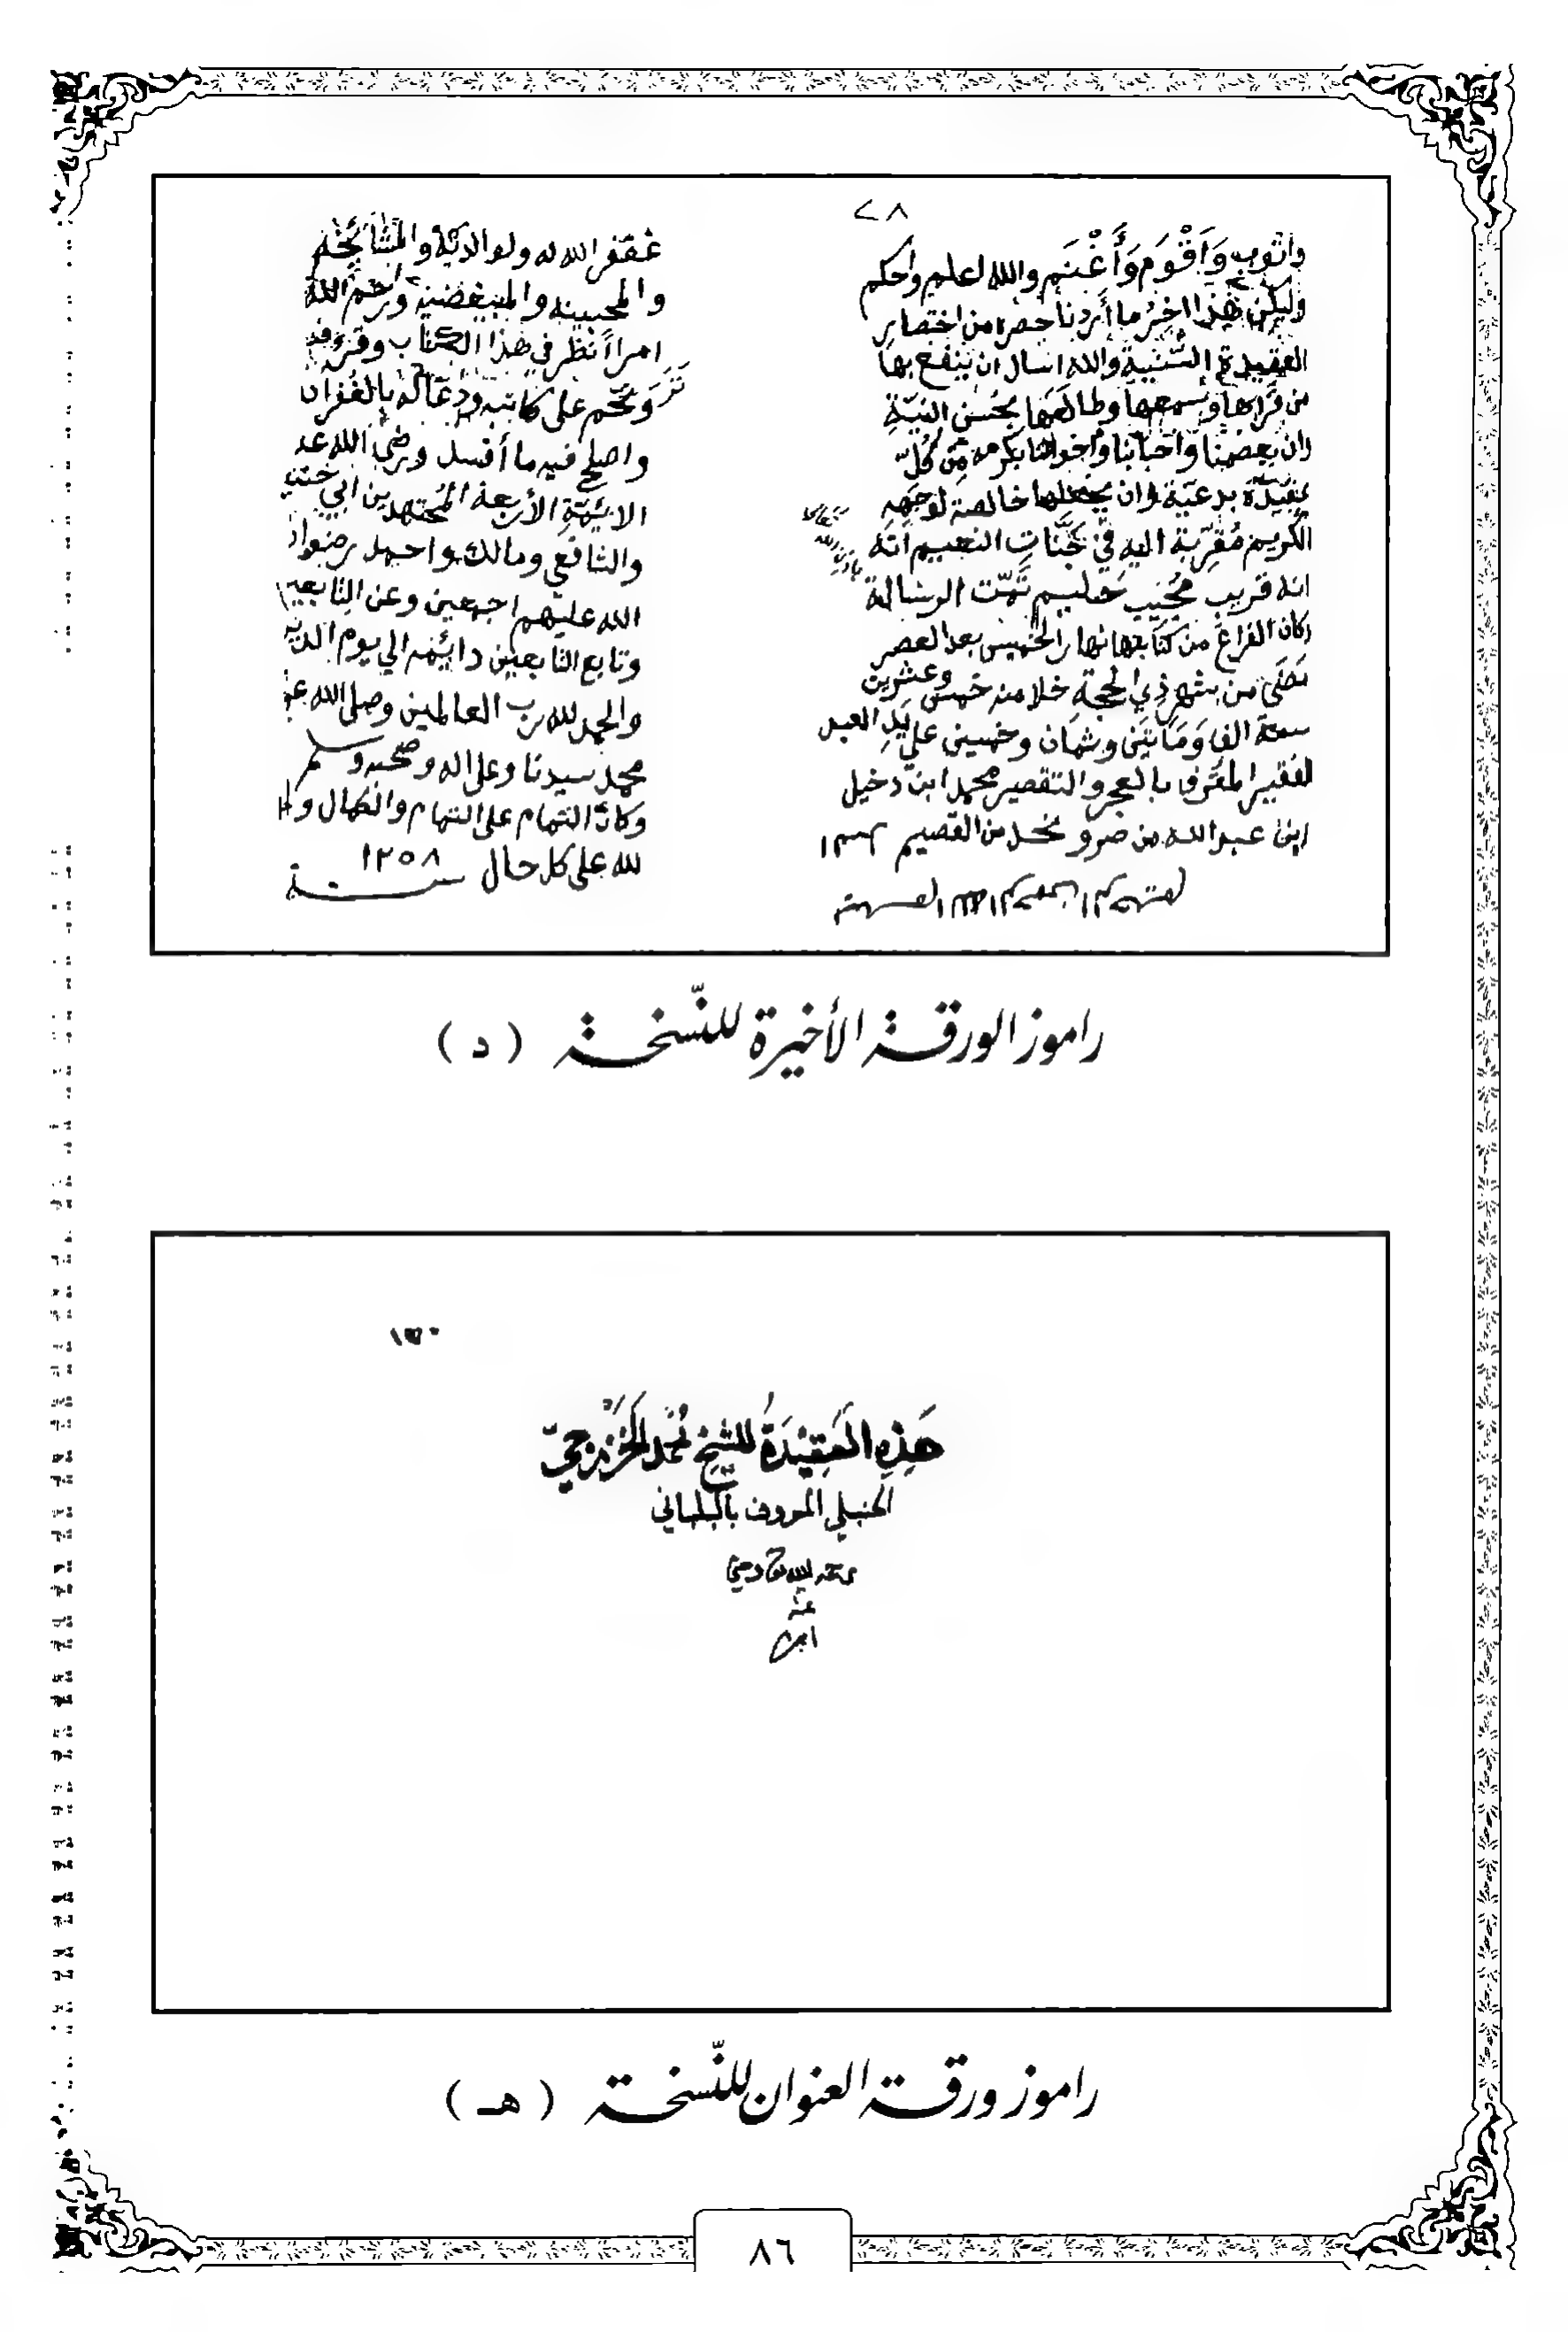 ٢٨
واثوب وَأَقْوَم وَأَغْنَم والله اعلم واحكم
وليكن هذا اخِرُ ما أردنا حصره من اختصار
العقيدة السُّنِّيةِ والله اسال ان ينفع بها
من قرأها وسمعها وطالعها بحُسن النيّة
وان يعصمنا واحبابنا واخواننا بكرمه مِن كُلّ
بدعيّة وان يجعلها خالصة لوجهه
الكريم مُقرِّبة اليه في جَنَّات النعيم انه
انه قريب مُجيب حَليم تَمّت الرسالة
وكان الفراغ من كتابتها نهار الخميس بعد العصر
مَضَى من شهر ذي الحجة خلا منه خمس وعشرين
سنة الف وَمَايتَين وثمان وخمسين على يَدِ العبد
الفقير المُعترف بالعجز والتقصير محمد ابن دخيل
ابن عبدالله من القصيم
غفر الله له ولوالديه والمشايخه
والمحبينه والمبيغضينه ورحم الله
امراً نظر في هذا الكتاب
وترحّم على كاتبه ودعا له بالغُفران
واصلح فيه ما أفسد ورضي الله عن
الائمّةِ الأربعة المُجتهدين ابي حنيفة
والشافعي ومالك واحمد رضوان
الله عليهم اجمعين وعن التابعين
وتابع التابعين دائمه الي يوم الدين
والحمد لله رب العالمين وصلى الله على
محمد سيدنا وعلى اله وصحبه وسلم
وكان التمام على التمام والكمال
لله على كل حال ١٢٥٨
سنة
راموز الورقة الأخيرة للنّسخة (د)
١٣٠
هَذِهِ العَقِيْدَةُ للشيخ مُحمد الخَزْرَجيّ
الحنبلي المعروف بالبلباني
عنه
راموز ورقة العنوان للنّسخة (هـ)
٨٦